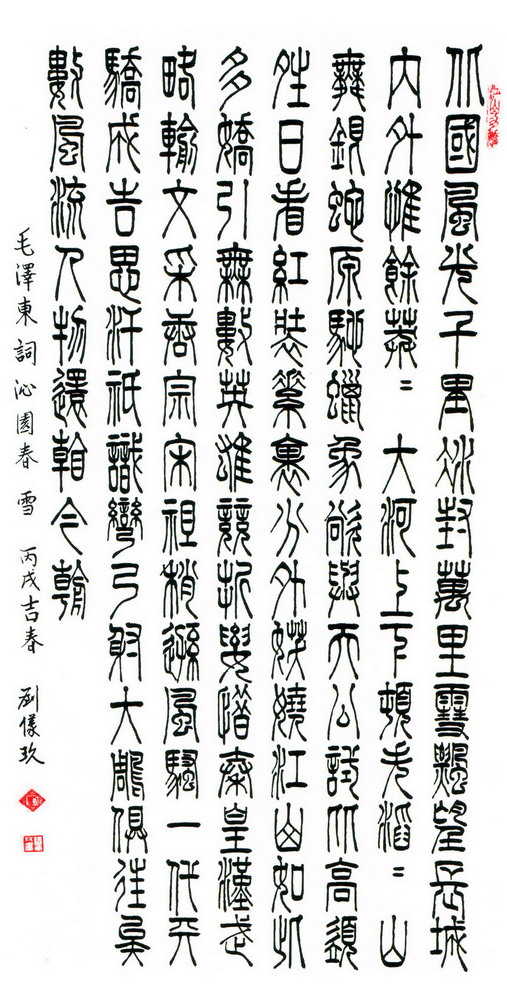 北國風光千里冰封萬里雪飄望長城
內外惟餘莽〻大河上下頓失滔〻山
舞銀蛇原馳蠟象欲與天公試比高須
晴日看紅裝素裹分外妖嬈江山如此
多嬌引無數英雄競折腰惜秦皇漢武
略輸文采唐宗宋祖稍遜風騷一代天
驕成吉思汗祇識彎弓射大雕俱往矣
數風流人物還看今朝
毛澤東詞沁園春 雪 丙戌吉春 劉儀玖